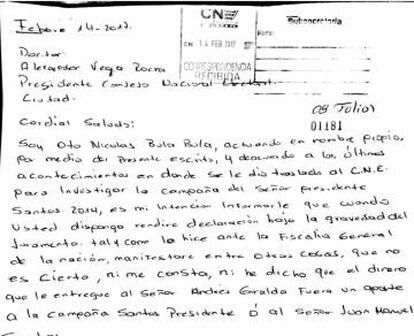 Febrero 14-2017.
CNE
Subsecretaria
Doctor
CN 14 FEB 2017
Alexander Vega Rocha
CORRESPONDENCIA
RECIBIDA
Presidente Consejo Nacional Electoral
Ciudad.
08 Folios
01181
Cordial Saludo:
Soy Oto Nicolas Bula Bula, actuando en nombre propio,
por medio del presente escrito, y deacuerdo a los últimos
acontecimientos en donde se le dio traslado al C.N.E.
para Investigar la campaña del Señor presidente
Santos 2014, es mi intencion Informarle que cuando
Usted disponga rendire declaración bajo la gravedad del
Juramento. tal y como lo hice ante la Fiscalia General
de la nación, manifestare entre otras cosas, que no
es cierto, ni me consta, ni he dicho que el dinero
que le entregue al Señor Andrés Giraldo Fuera un aporte
a la campaña Santos Presidente ó al Señor Juan Manuel